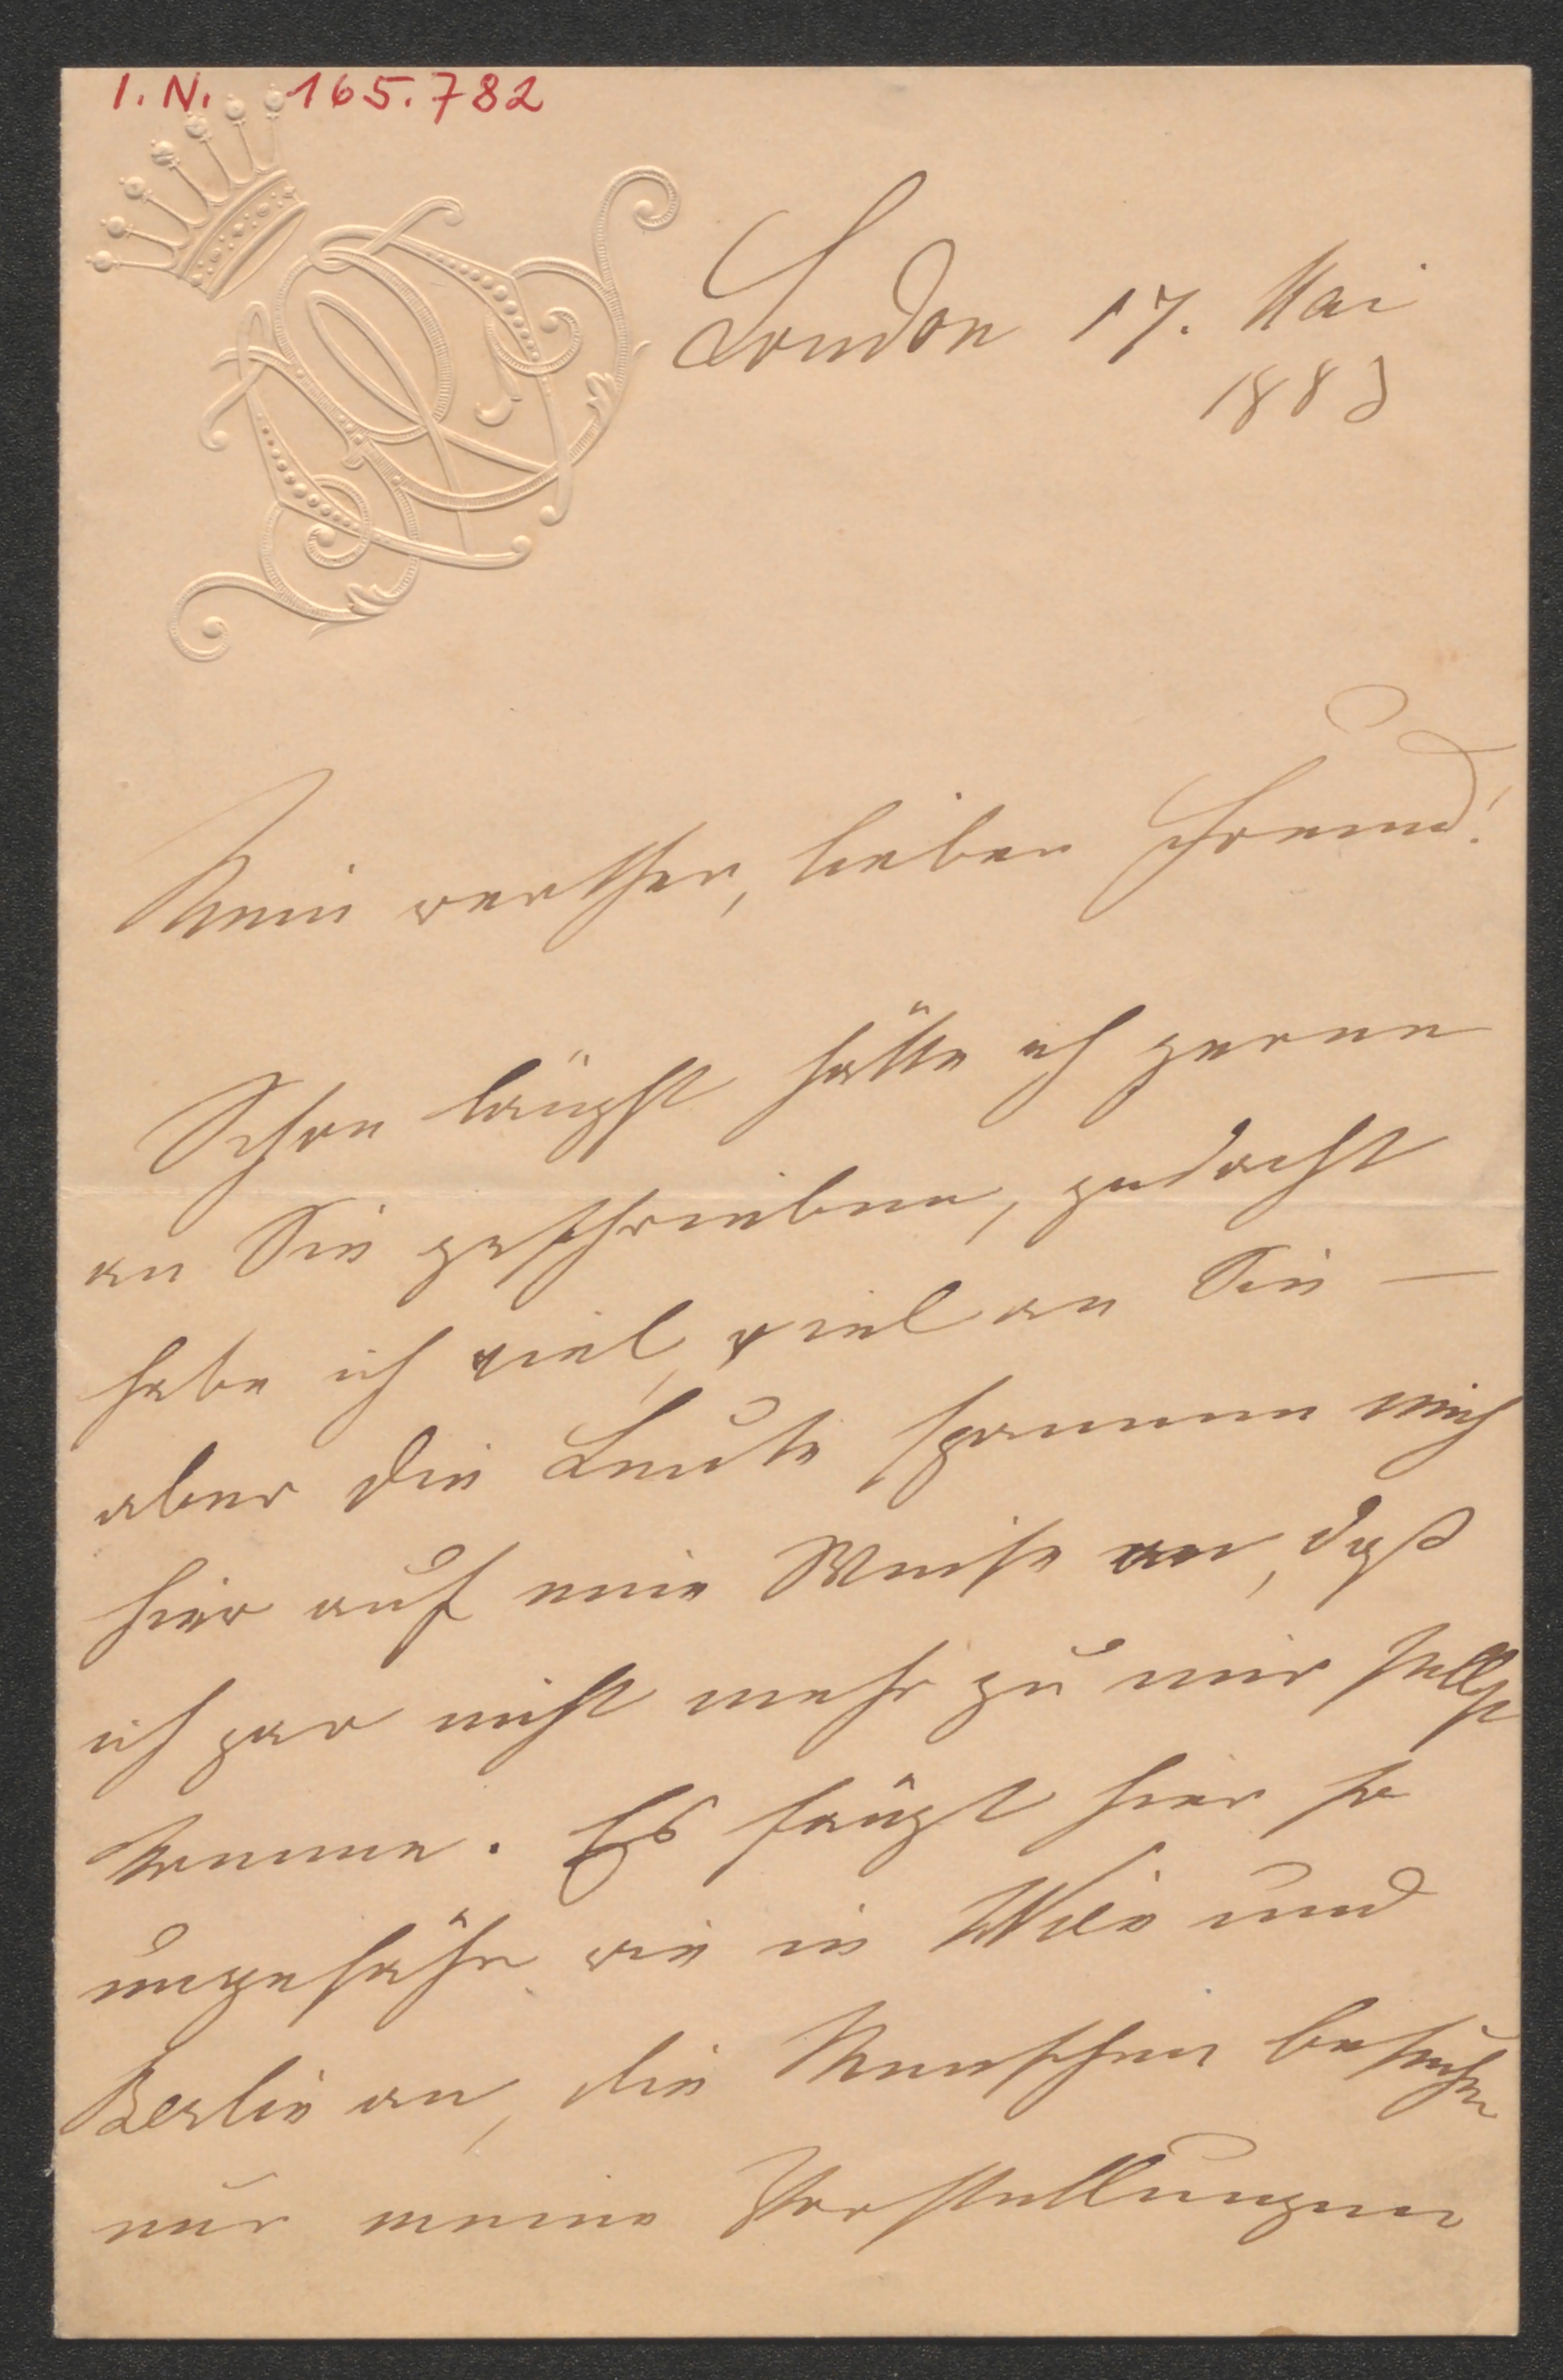 I. N. 165.782
London 17. Mai
1883
Mein werther, lieber Freund!
Schon längst hätte ich gerne
an Sie geschrieben, gedacht
habe ich viel, viel an Sie —
aber die Leute spannen mich
hier auf eine Weise an, daß
ich gar nicht mehr zu mir selbst
komme. Es fängt hier so
ungefähr wie in Wien und
Berlin an, die Menschen besuchen
nur meine Vorstellungen